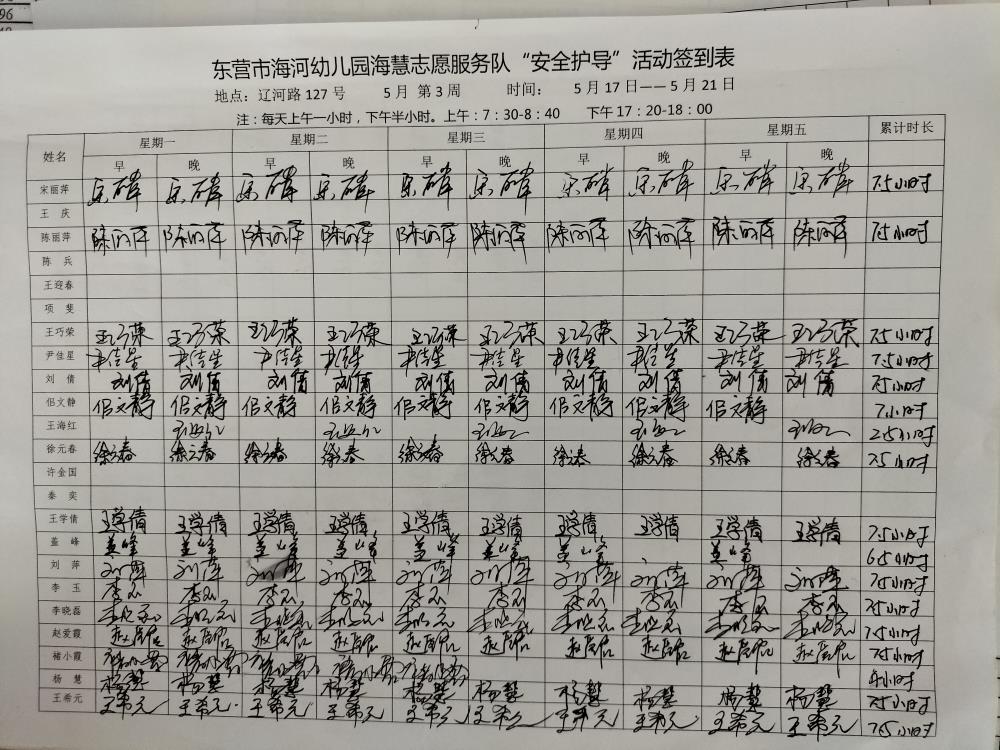 96
东营市海河幼儿园海慧志愿服务队“安全护导”活动签到表
地点：辽河路 127 号 5 月 第 3 周 时间： 5 月 17 日——5 月 21 日
注：每天上午一小时，下午半小时。上午：7：30-8：40 下午 17：20-18：00
姓名 星期一 星期二 星期三 星期四 星期五 累计时长
早 晚 早 晚 早 晚 早 晚 早 晚
宋丽萍 7.5小时
王 庆
陈丽萍 陈丽萍 陈丽萍 陈丽萍 陈丽萍 陈丽萍 陈丽萍 陈丽萍 陈丽萍 陈丽萍 陈丽萍 7.5小时
陈 兵
王迎春
项 斐
王巧荣 王巧荣 王巧荣 王巧荣 王巧荣 王巧荣 王巧荣 王巧荣 王巧荣 王巧荣 王巧荣 7.5小时
尹佳星 尹佳星 尹佳星 尹佳星 尹佳星 尹佳星 尹佳星 尹佳星 尹佳星 尹佳星 尹佳星 7.5小时
刘 倩 刘倩 刘倩 刘倩 刘倩 刘倩 刘倩 刘倩 刘倩 刘倩 刘倩 7.5小时
佀文静 佀文静 佀文静 佀文静 佀文静 佀文静 佀文静 佀文静 佀文静 佀文静 7小时
王海红 王海红 王海红 王海红 王海红 王海红 2.5小时
徐元春 徐元春 徐元春 徐元春 徐元春 徐元春 徐元春 徐元春 徐元春 徐元春 徐元春 7.5小时
许金国
秦 奕
王学倩 王学倩 王学倩 王学倩 王学倩 王学倩 王学倩 王学倩 王学倩 王学倩 王学倩 7.5小时
盖 峰 盖峰 盖峰 盖峰 盖峰 盖峰 盖峰 盖峰 盖峰 6.5小时
刘 萍 刘萍 刘萍 刘萍 刘萍 刘萍 刘萍 刘萍 刘萍 刘萍 刘萍 7.5小时
李 玉 李玉 李玉 李玉 李玉 李玉 李玉 李玉 李玉 李玉 李玉 7.5小时
李晓磊 李晓磊 李晓磊 李晓磊 李晓磊 李晓磊 李晓磊 李晓磊 李晓磊 李晓磊 李晓磊 7.5小时
赵爱霞 赵爱霞 赵爱霞 赵爱霞 赵爱霞 赵爱霞 赵爱霞 赵爱霞 赵爱霞 赵爱霞 赵爱霞 7.5小时
褚小霞 褚小霞 褚小霞 褚小霞 褚小霞 褚小霞 4小时
杨 慧 杨慧 杨慧 杨慧 杨慧 杨慧 杨慧 杨慧 杨慧 杨慧 杨慧 7.5小时
王希元 王希元 王希元 王希元 王希元 王希元 王希元 王希元 王希元 王希元 王希元 7.5小时